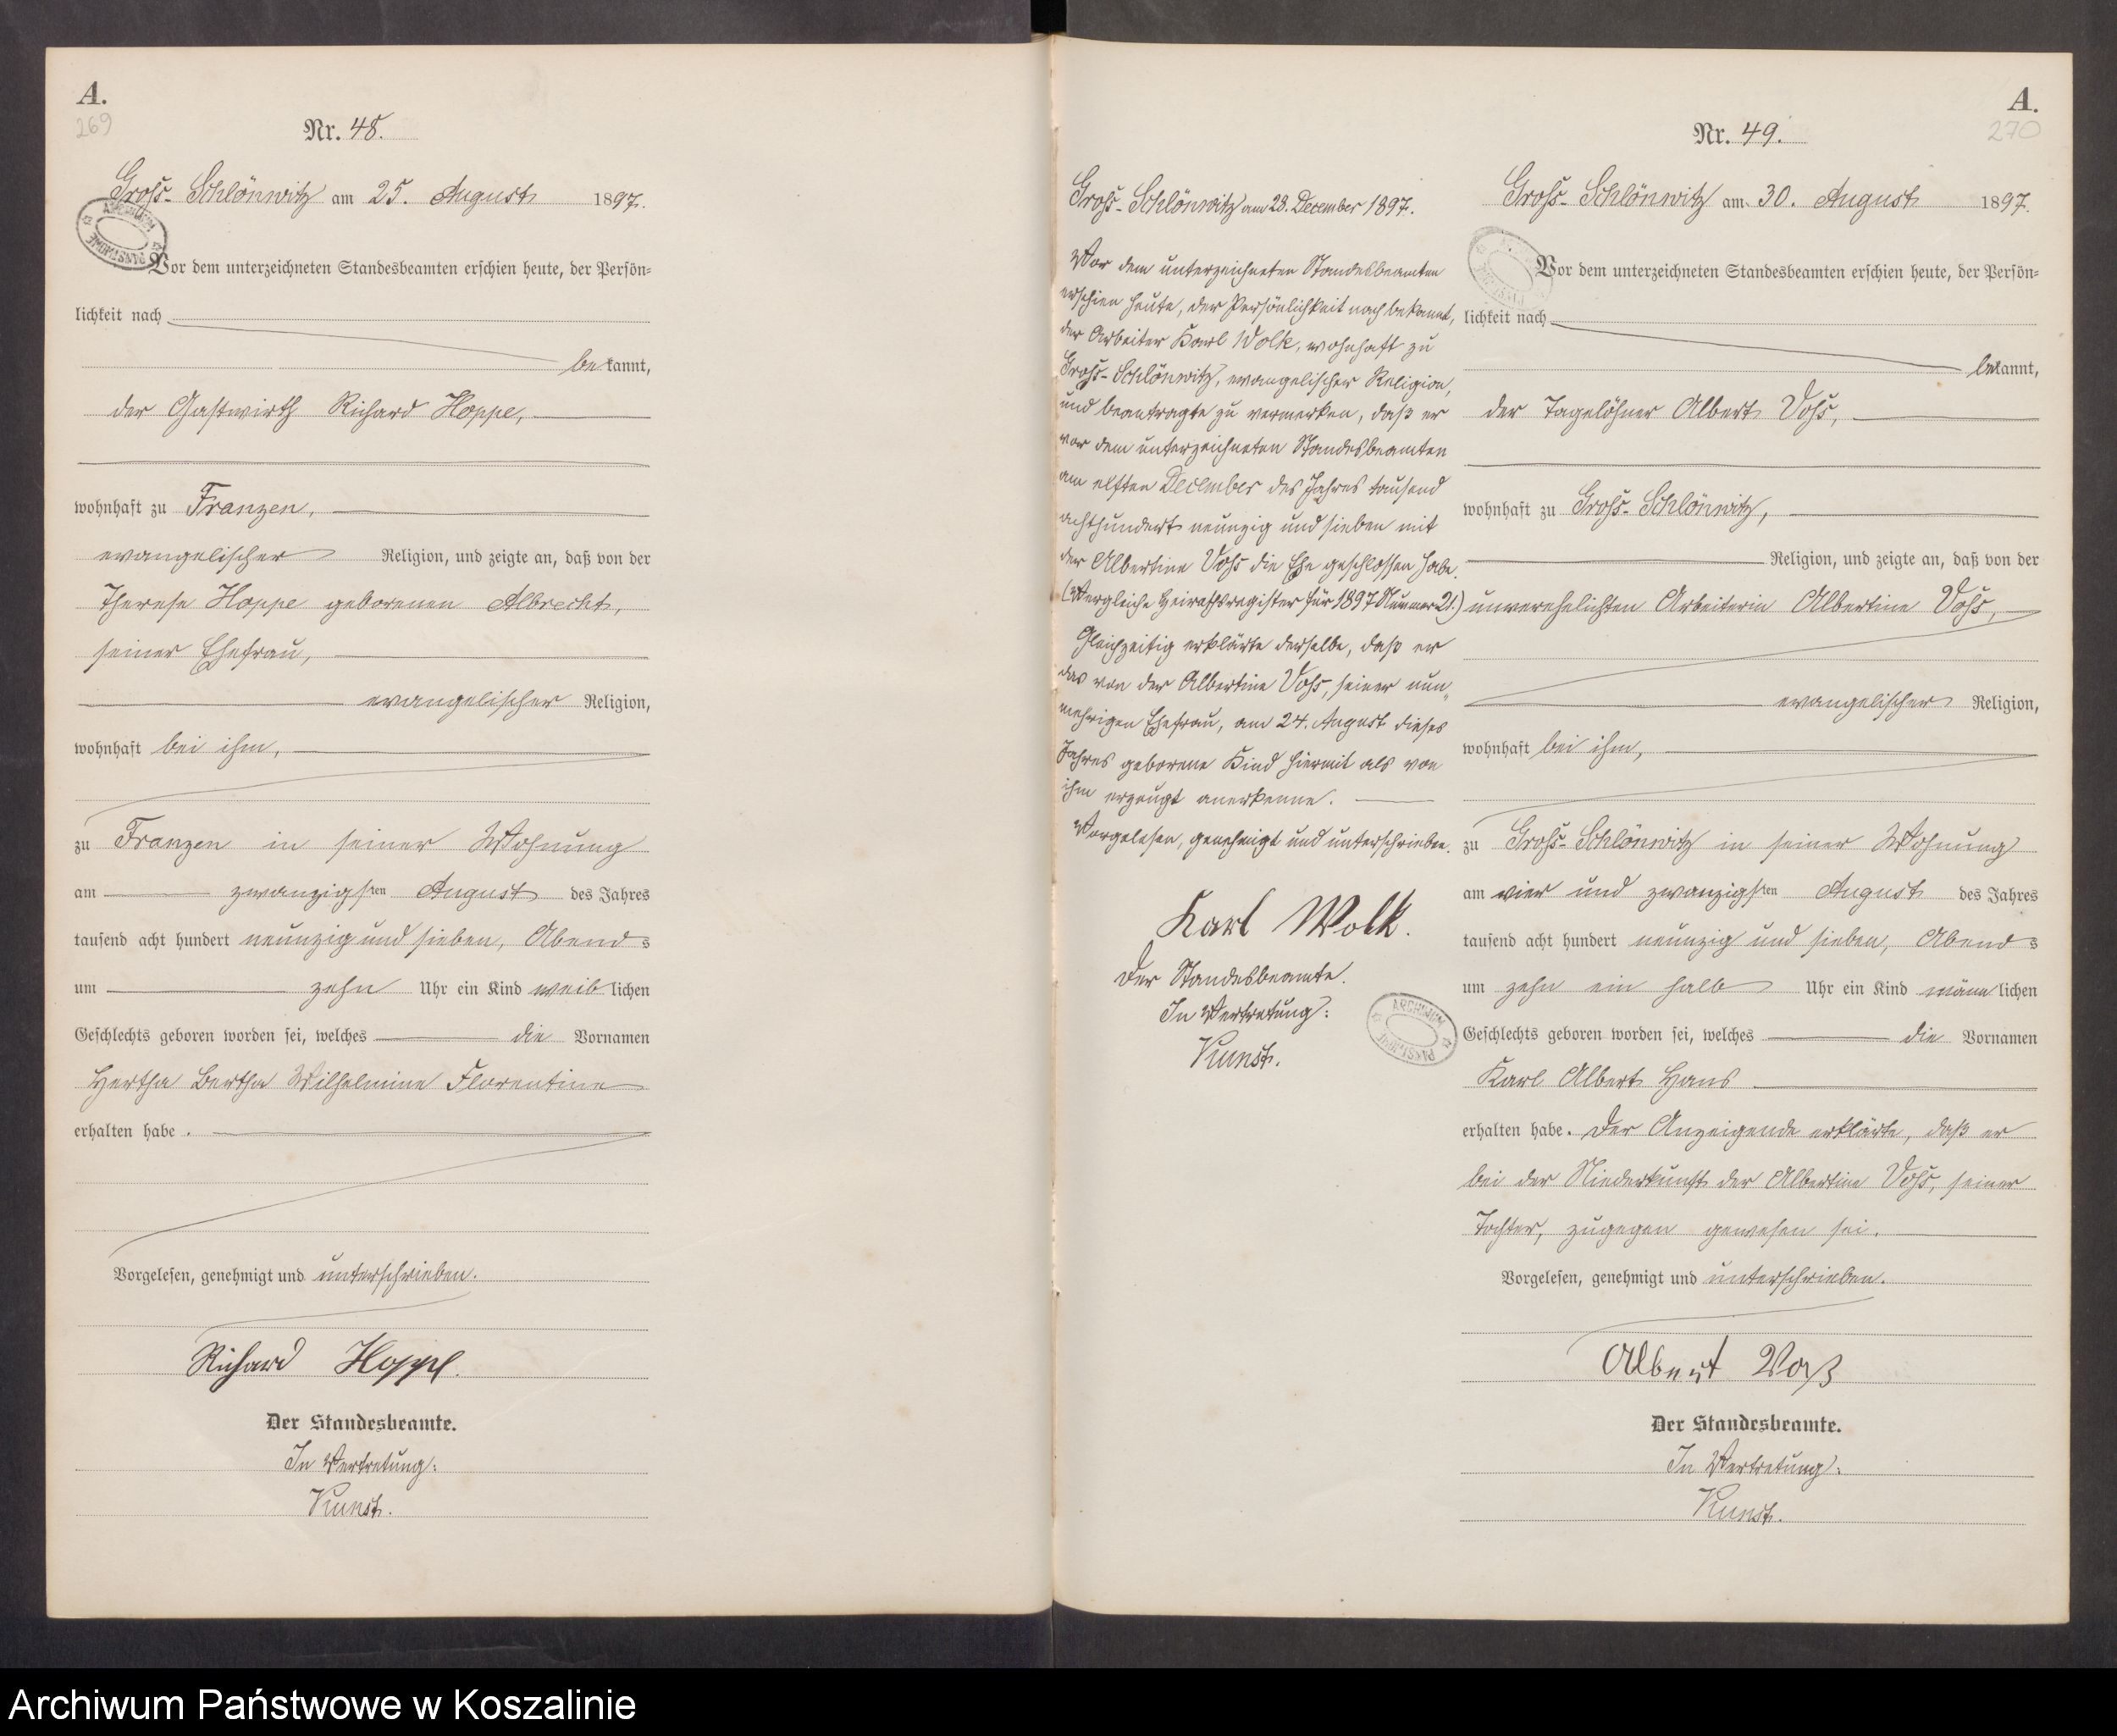 A.
269
Nr. 48.
Groß-Schlönwitz am 25. August 1897.
Vor dem unterzeichneten Standesbeamten erschien heute, der Persön=
lichkeit nach
bekannt,
der Gastwirth Richard Hoppe,
wohnhaft zu Franzen,
evangelischer Religion, und zeigte an, daß von der
Therese Hoppe geborenen Albrecht,
seiner Ehefrau,
evangelischer Religion,
wohnhaft bei ihm,
zu Franzen in seiner Wohnung
am zwanzigsten August des Jahres
tausend acht hundert neunzig und sieben, Abends
um zehn Uhr ein Kind weiblichen
Geschlechts geboren worden sei, welches die Vornamen
Hertha Bertha Wilhelmine Florentine
erhalten habe.
Vorgelesen, genehmigt und unterschrieben.
Richard Hoppe.
Der Standesbeamte.
In Vertretung:
Kunst.
Groß-Schlönwitz am 28. December 1897.
Vor dem unterzeichneten Standesbeamten
erschien heute, der Persönlichkeit nach bekannt,
der Arbeiter Karl Wolk, wohnhaft zu
Groß-Schlönwitz, evangelischer Religion,
und beantragte zu vermerken, daß er
vor dem unterzeichneten Standesbeamten
am elften December des Jahres tausend
achthundert neunzig und sieben mit
der Albertine Voß die Ehe geschlossen habe.
(Vergleiche Heirathsregister für 1897 Nummer 21.)
Gleichzeitig erklärte derselbe, daß er
das von der Albertine Voß, seiner nun„
mehrigen Ehefrau, am 24. August dieses
Jahres geborene Kind hiermit als von
ihm erzeugt anerkenne.
Vorgelesen, genehmigt und unterschrieben.
Karl Wolk.
Der Standesbeamte.
In Vertretung:
Kunst.
A.
270
Nr. 49.
Groß-Schlönwitz am 30. August 1897.
Vor dem unterzeichneten Standesbeamten erschien heute, der Persön=
lichkeit nach
bekannt,
der Tagelöhner Albert Voß,
wohnhaft zu Groß-Schlönwitz,
Religion, und zeigte an, daß von der
unverehelichten Arbeiterin Albertine Voß,
evangelischer Religion,
wohnhaft bei ihm,
zu Groß-Schlönwitz in seiner Wohnung
am vier und zwanzigsten August des Jahres
tausend acht hundert neunzig und sieben, Abends
um zehn ein halb Uhr ein Kind männlichen
Geschlechts geboren worden sei, welches die Vornamen
Karl Albert Hans
erhalten habe. Der Anzeigende erklärte, daß er
bei der Niederkunft der Albertine Voß, seiner
Tochter, zugegen gewesen sei.
Vorgelesen, genehmigt und unterschrieben.
Albert Voß
Der Standesbeamte.
In Vertretung:
Kunst.
ARCHIWUM PAŃSTWOWE
Archiwum Państwowe w Koszalinie